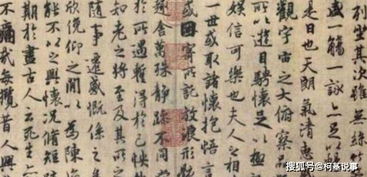 列坐其次雖無絲
盛一觴一詠亦足以
是日也天朗氣清惠
觀宇宙之大俯察
所以遊目騁懷足以極
娛信可樂也夫人之相
一世或取諸懷抱悟言
或因寄所託放浪形骸
趣舍萬殊靜躁不同
於所遇暫得於己快
知老之將至及其所之
隨事遷感慨係之
欣俛仰之間以為陳
能不以之興懷況脩短
期於盡古人云死生
不痛哉每攬昔人興
搜狐号@柯基说事